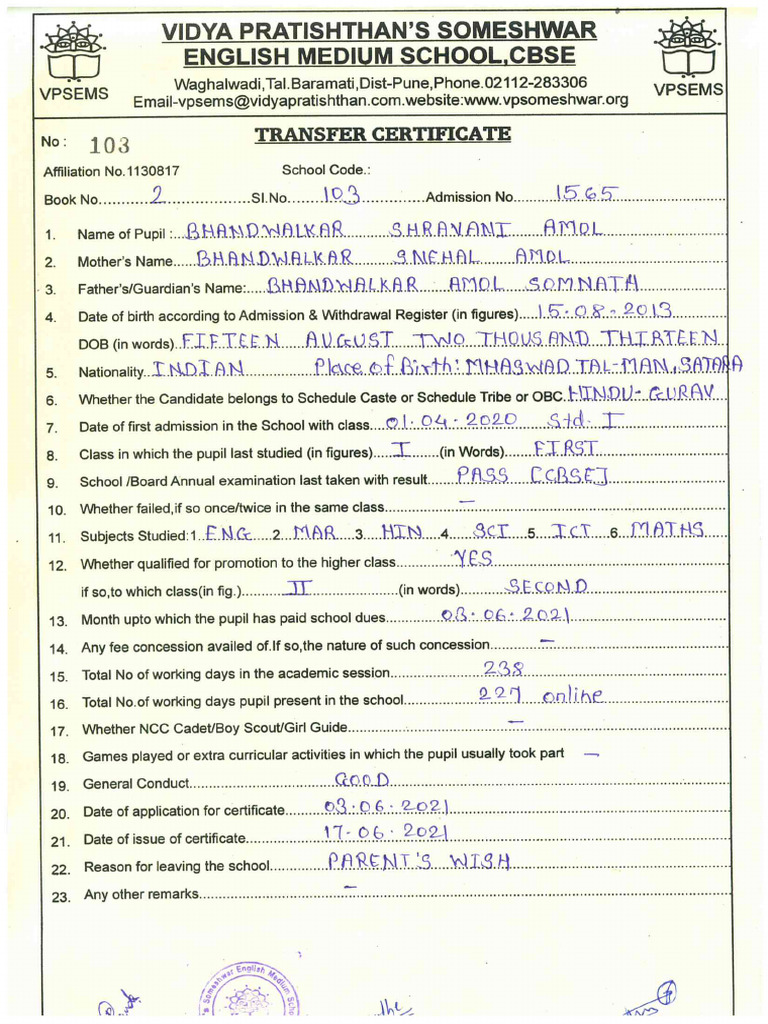 VIDYA PRATISHTHAN'S SOMESHWAR
ENGLISH MEDIUM SCHOOL,CBSE
VPSEMS
VPSEMS
Waghalwadi,Tal.Baramati,Dist-Pune,Phone.02112-283306
Email-vpsems@vidyapratishthan.com.website:www.vpsomeshwar.org
No : 103
TRANSFER CERTIFICATE
Affiliation No.1130817 School Code.:
Book No. 2 Sl.No. 103 Admission No. 1565
1. Name of Pupil : BHANDWALKAR SHRAVANI AMOL
2. Mother's Name BHANDWALKAR SNEHAL AMOL
3. Father's/Guardian's Name: BHANDWALKAR AMOL SOMNATH
4. Date of birth according to Admission & Withdrawal Register (in figures) 15-08-2013
DOB (in words) FIFTEEN AUGUST TWO THOUSAND THIRTEEN
5. Nationality INDIAN Place of Birth: MHASWAD TAL-MAN, SATARA
6. Whether the Candidate belongs to Schedule Caste or Schedule Tribe or OBC. HINDU-GURAV
7. Date of first admission in the School with class 01-04-2020 Std-I
8. Class in which the pupil last studied (in figures) I (in Words) FIRST
9. School /Board Annual examination last taken with result PASS [CBSE]
10. Whether failed,if so once/twice in the same class –
11. Subjects Studied:1 ENG 2 MAR 3 HIN 4 SCI 5 ICT 6 MATHS
12. Whether qualified for promotion to the higher class YES
if so,to which class(in fig.) II (in words) SECOND
13. Month upto which the pupil has paid school dues 03-06-2021
14. Any fee concession availed of.If so,the nature of such concession –
15. Total No of working days in the academic session 238
16. Total No.of working days pupil present in the school 227 online
17. Whether NCC Cadet/Boy Scout/Girl Guide –
18. Games played or extra curricular activities in which the pupil usually took part –
19. General Conduct GOOD
20. Date of application for certificate 03-06-2021
21. Date of issue of certificate 17-06-2021
22. Reason for leaving the school PARENT'S WISH
23. Any other remarks –
Someshwar English Medium